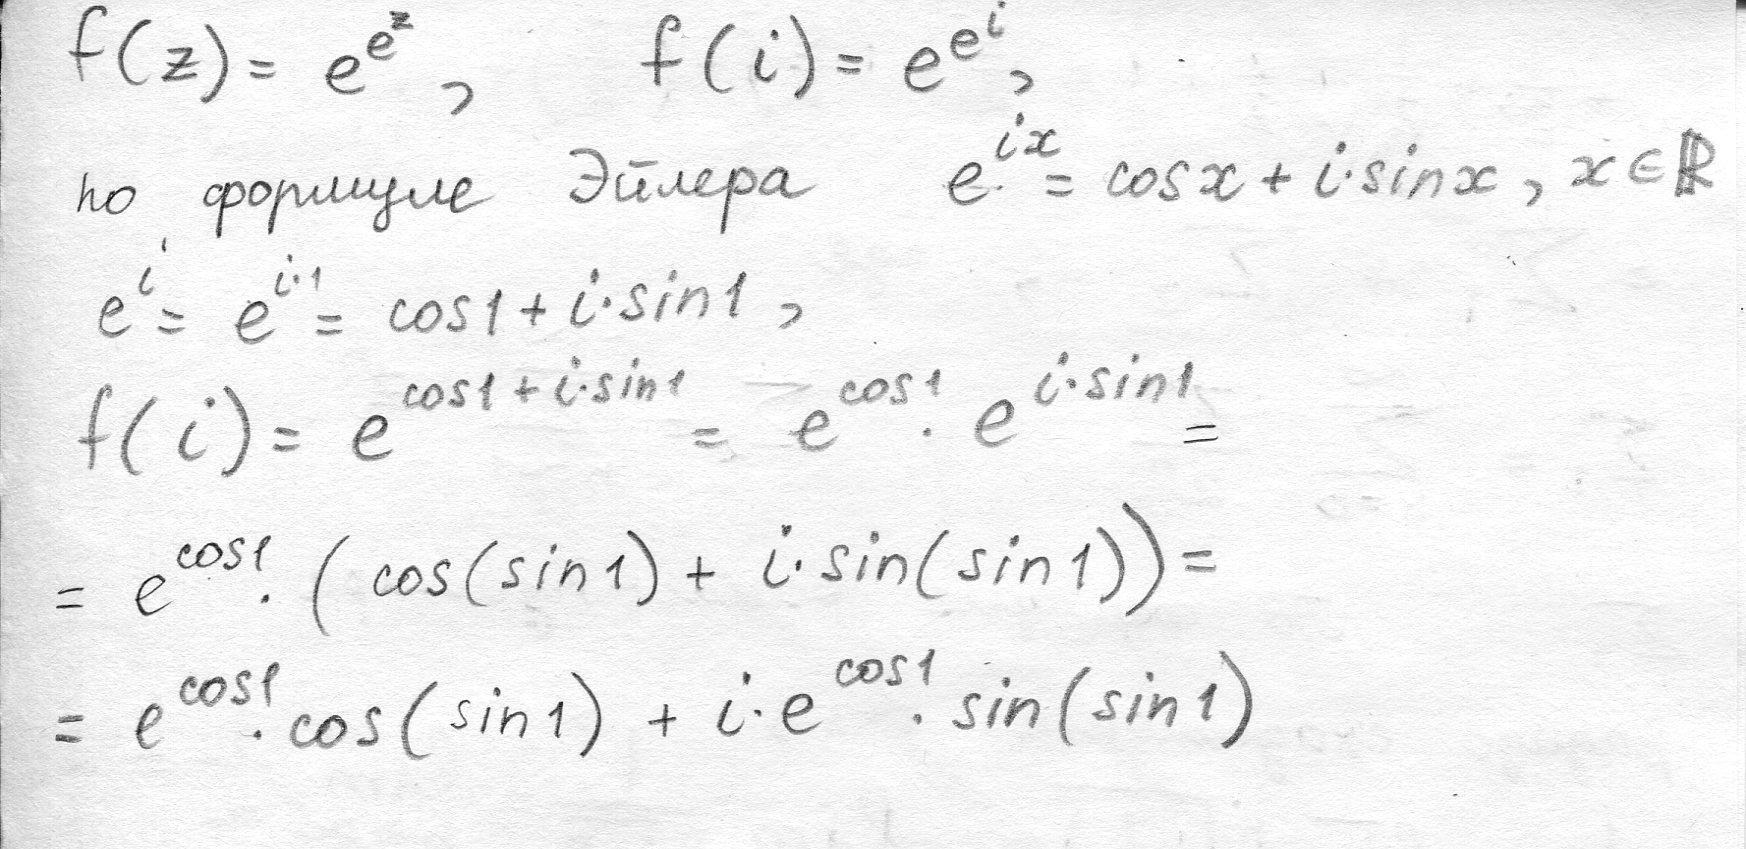 f(z) = e^{e^z}, f(i) = e^{e^i},
по формуле Эйлера e^{ix} = cosx + i·sinx, x ∈ ℝ
e^i = e^{i·1} = cos1 + i·sin1,
f(i) = e^{cos1 + i·sin1} = e^{cos1} · e^{i·sin1} =
= e^{cos1} · (cos(sin1) + i·sin(sin1)) =
= e^{cos1} · cos(sin1) + i·e^{cos1} · sin(sin1)